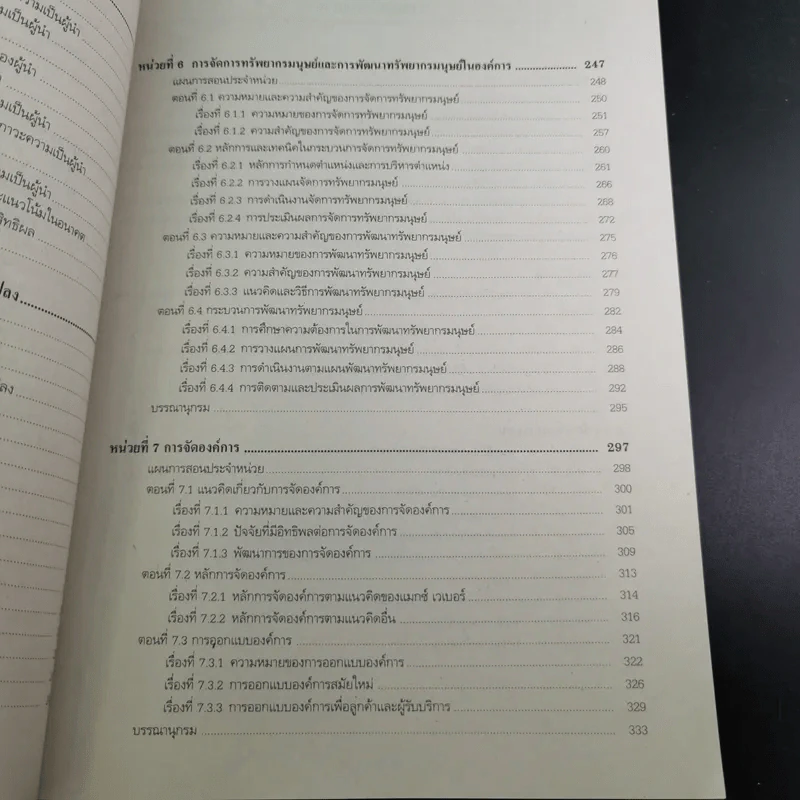 วามเป็นผู้นำ
มเป็นผู้นำ
องผู้นำ
มเป็นผู้นำ
ภาวะความเป็นผู้นำ
มเป็นผู้นำ
ะแนวโน้มในอนาคต
สิทธิผล
ปลง
ปลง
หน่วยที่ 6 การจัดการทรัพยากรมนุษย์และการพัฒนาทรัพยากรมนุษย์ในองค์การ 247
แผนการสอนประจำหน่วย 248
ตอนที่ 6.1 ความหมายและความสำคัญของการจัดการทรัพยากรมนุษย์ 250
เรื่องที่ 6.1.1 ความหมายของการจัดการทรัพยากรมนุษย์ 251
เรื่องที่ 6.1.2 ความสำคัญของการจัดการทรัพยากรมนุษย์ 257
ตอนที่ 6.2 หลักการและเทคนิคในกระบวนการจัดการทรัพยากรมนุษย์ 260
เรื่องที่ 6.2.1 หลักการกำหนดตำแหน่งและการบริหารตำแหน่ง 261
เรื่องที่ 6.2.2 การวางแผนจัดการทรัพยากรมนุษย์ 266
เรื่องที่ 6.2.3 การดำเนินงานจัดการทรัพยากรมนุษย์ 268
เรื่องที่ 6.2.4 การประเมินผลการจัดการทรัพยากรมนุษย์ 272
ตอนที่ 6.3 ความหมายและความสำคัญของการพัฒนาทรัพยากรมนุษย์ 275
เรื่องที่ 6.3.1 ความหมายของการพัฒนาทรัพยากรมนุษย์ 276
เรื่องที่ 6.3.2 ความสำคัญของการพัฒนาทรัพยากรมนุษย์ 277
เรื่องที่ 6.3.3 แนวคิดและวิธีการพัฒนาทรัพยากรมนุษย์ 279
ตอนที่ 6.4 กระบวนการพัฒนาทรัพยากรมนุษย์ 282
เรื่องที่ 6.4.1 การศึกษาความต้องการในการพัฒนาทรัพยากรมนุษย์ 284
เรื่องที่ 6.4.2 การวางแผนการพัฒนาทรัพยากรมนุษย์ 286
เรื่องที่ 6.4.3 การดำเนินงานตามแผนพัฒนาทรัพยากรมนุษย์ 288
เรื่องที่ 6.4.4 การติดตามและประเมินผลการพัฒนาทรัพยากรมนุษย์ 292
บรรณานุกรม 295
หน่วยที่ 7 การจัดองค์การ 297
แผนการสอนประจำหน่วย 298
ตอนที่ 7.1 แนวคิดเกี่ยวกับการจัดองค์การ 300
เรื่องที่ 7.1.1 ความหมายและความสำคัญของการจัดองค์การ 301
เรื่องที่ 7.1.2 ปัจจัยที่มีอิทธิพลต่อการจัดองค์การ 305
เรื่องที่ 7.1.3 พัฒนาการของการจัดองค์การ 309
ตอนที่ 7.2 หลักการจัดองค์การ 313
เรื่องที่ 7.2.1 หลักการจัดองค์การตามแนวคิดของแมกซ์ เวเบอร์ 314
เรื่องที่ 7.2.2 หลักการจัดองค์การตามแนวคิดอื่น 316
ตอนที่ 7.3 การออกแบบองค์การ 321
เรื่องที่ 7.3.1 ความหมายของการออกแบบองค์การ 322
เรื่องที่ 7.3.2 การออกแบบองค์การสมัยใหม่ 326
เรื่องที่ 7.3.3 การออกแบบองค์การเพื่อลูกค้าและผู้รับบริการ 329
บรรณานุกรม 333